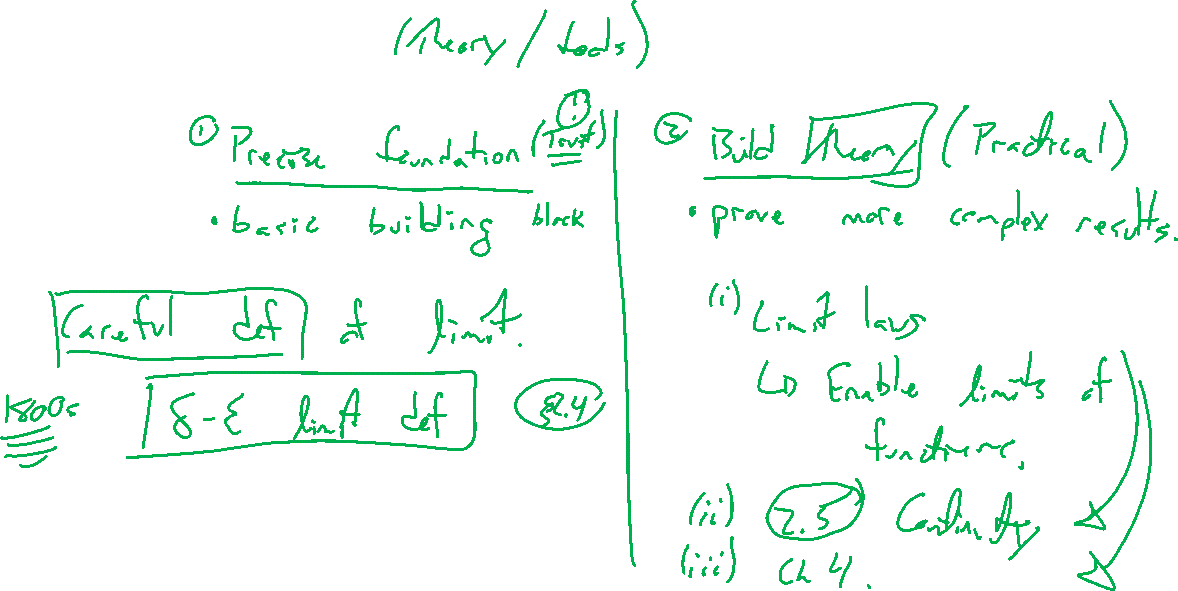 (Theory / tools)
① Precise foundation (Trust) !
• basic building block
Careful def of limit.
1800s
δ-ε limit def §2.4
② Build Theory (Practical)
• prove more complex results.
(i) Limit laws
↳ Enable limits of
functions.
(ii) 2.5 Continuity
(iii) Ch 4.